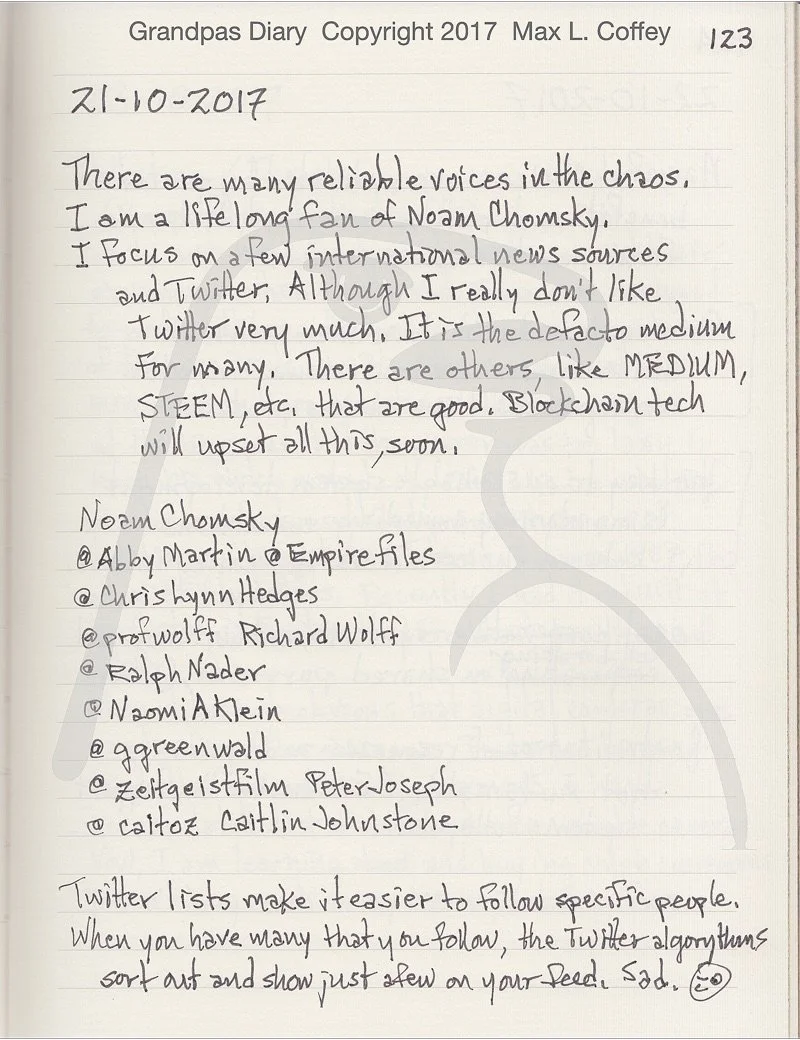 Grandpas Diary Copyright 2017 Max L. Coffey 123
21-10-2017
There are many reliable voices in the chaos.
I am a lifelong fan of Noam Chomsky.
I focus on a few international news sources
and Twitter. Although I really don't like
Twitter very much. It is the defacto medium
for many. There are others, like MEDIUM,
STEEM, etc. that are good. Blockchain tech
will upset all this, soon.
Noam Chomsky
@Abby Martin @Empirefiles
@ChrisLynnHedges
@profwolff Richard Wolff
@RalphNader
@NaomiAKlein
@ggreenwald
@zeitgeistfilm Peter Joseph
@caitoz Caitlin Johnstone
Twitter lists make it easier to follow specific people.
When you have many that you follow, the Twitter algorythms
sort out and show just a few on your feed. Sad.